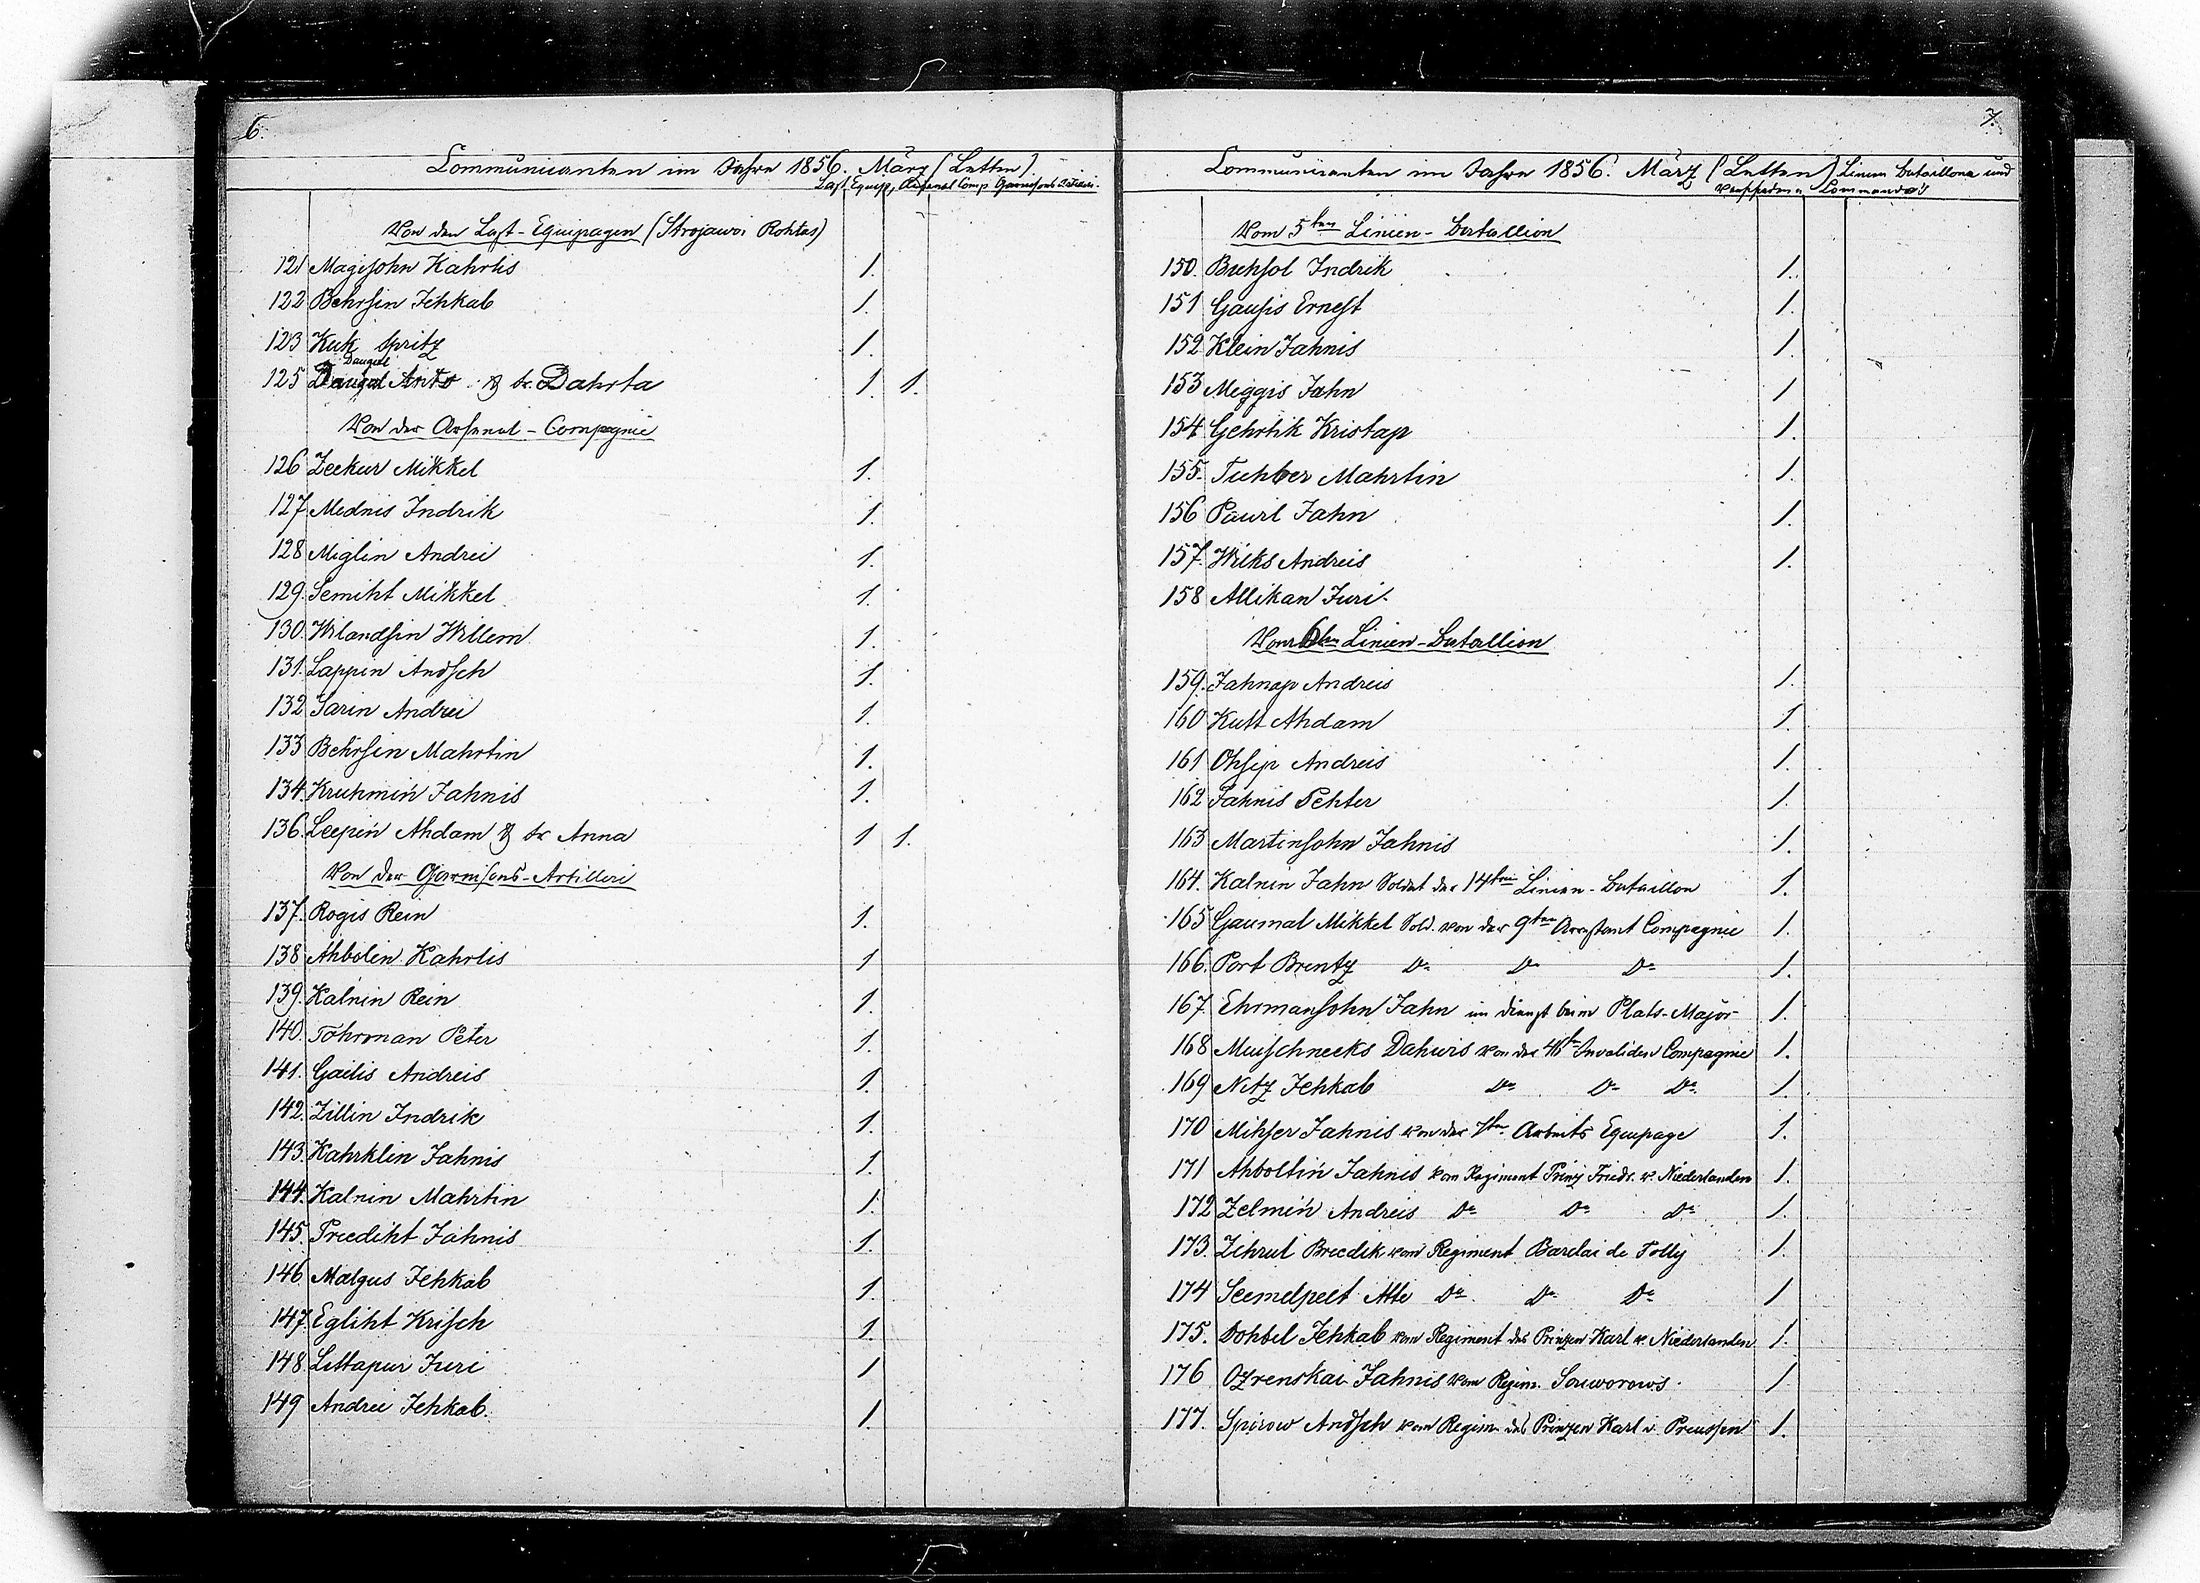 6.
Communicanten im Jahre 1856. März (Letten).
Last Equip, Arsenal Comp Garnisons Artilleri.
Von den Last-Equipagen (Strojawoi Rohtas)
121 Magisohn Kahrlis 1.
122 Behrsin Jehkab 1.
123 Kuk Spritz 1.
Daugul
125 Daugal Anto & fr. Dahrta 1. 1.
Von der Arsenal-Compagnie
126 Zeekur Mikkel 1.
127 Mednis Indrik 1.
128 Miglin Andrei 1.
129. Semiht Mikkel 1.
130. Wilandsin Willem 1.
131. Lappin Andsch 1.
132 Sarin Andrei 1.
133 Behrsin Mahrtin 1.
134. Kruhmiń Jahnis 1.
136. Leepiń Ahdam & fr Anna 1 1.
Von der Garnisons-Artilleri
137. Rogis Rein 1.
138 Ahbolin Kahrlis 1
139. Kalnin Rein 1.
140. Tohrman Peter 1.
141. Gailis Andreis 1.
142. Zillin Indrik 1.
143. Kahrklin Jahnis 1.
144. Kalnin Mahrtin 1.
145. Preediht Jahnis 1.
146 Malgus Jehkab 1.
147. Egliht Krisch 1.
148. Littapur Juri 1
149 Andrei Jehkab. 1.
7.
Communicanten im Jahre 1856. März (Letten) Linien Bataillone und
verschiedene Commando's
Vom 5ten Linien-Batallion
150. Buhsol Indrik 1.
151 Gausis Ernest 1.
152 Klein Jahnis 1.
153 Meggis Jahn 1.
154 Gehrtik Kristap 1.
155. Tuhber Mahrtin 1.
156 Pawil Jahn 1.
157. Wilks Andreis 1.
158 Allikan Juri.
Vom 6ten Linien-Batallion
159. Jahnap Andreis 1.
160 Kutt Ahdam 1.
161 Ohsip Andreis 1.
162 Jahnis Pehter 1.
163 Martinsohn Jahnis 1.
164. Kalnin Jahn Soldat der 14ten Linien-Bataillon 1.
165 Gaumal Mikkel Sold. von der 9ten Arrestant Compagnie 1.
166. Port Brentz Do Do Do 1.
167. Ehrmansohn Jahn im Dienst beim Plats-Major 1.
168 Muischneeks Dahwis von der 46te Invaliden Compagnie 1.
169 Nitz Jehkab Do Do Do 1.
170 Mihser Jahnis von der 7ten Arbeits Equipage 1.
171 Ahboltiń Jahnis vom Regiment Prinz Friedr. v. Niederlanden 1.
172 Zelmiń Andreis Do Do Do 1.
173. Zihrul Breedik vom Regiment Barclai de Tolly 1.
174 Seemelpeet Atte Do Do Do 1
175. Dohbel Jehkab vom Regiment des Prinzen Karl v. Niederlanden 1.
176 Ozrenskai Jahnis vom Regim. Souworows. 1
177. Spirow Andsch vom Regim des Prinzen Karl v. Preussen 1.